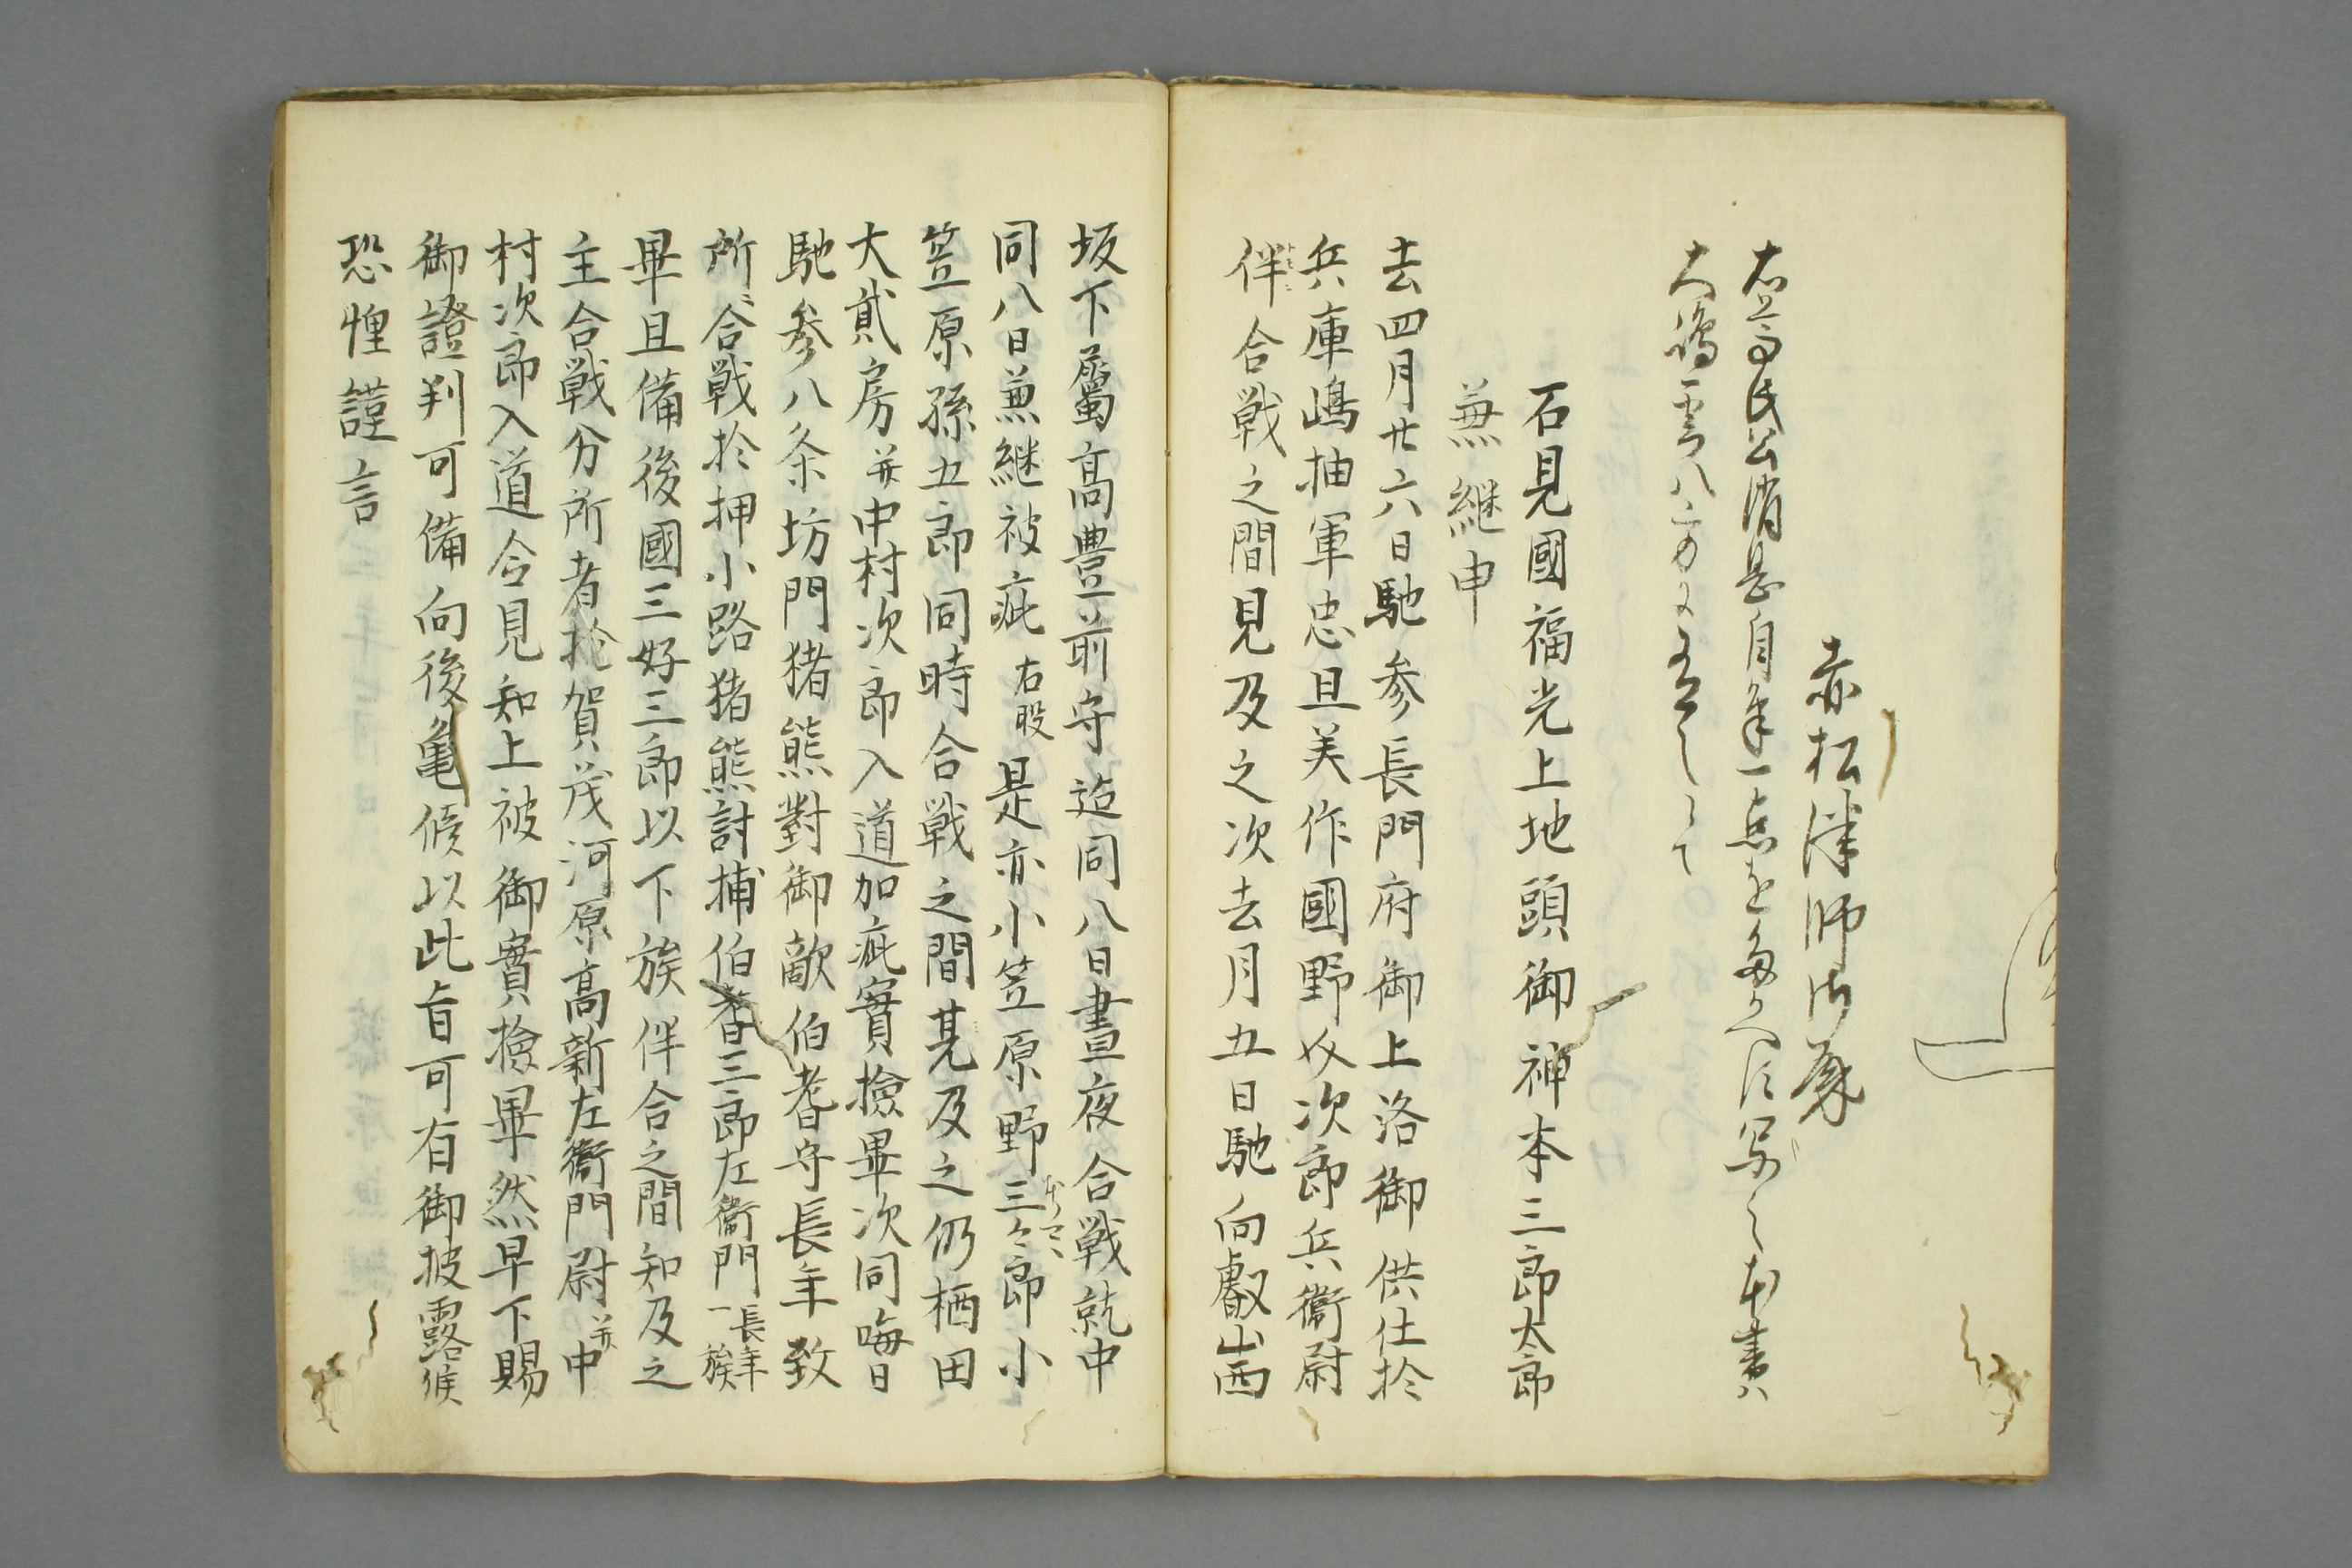 赤松律師御房
右尊氏公消息自筆一点を
大嶋雲八方に
石見國福光上地頭御神本三郎太郎
兼継申
去四月廿六日馳参長門府御上洛御供仕於
兵庫嶋抽軍忠且美作國野次郎兵衞尉
伴合戦之間見及之次去月五日馳向叡山西
坂下屬高豊前守迄同八日晝夜合戦就中
同八日兼継被疵右股是亦小笠原野三々郎小
笠原孫五郎同時合戦之間見及之仍栖田
大貳房并中村次郎入道加疵實撿畢次同晦日
馳参八条坊門猪熊對御敵伯耆守長年致
所々合戦於押小路猪熊討捕伯耆三郎左衞門長年一族
畢且備後國三好三郎以下族伴合之間知及之
主合戦分所者於賀茂河原高新左衞門尉并中
村次郎入道合見知上被御實撿畢然早下賜
御證判可備向後亀候以此旨可有御披露候
恐惶謹言